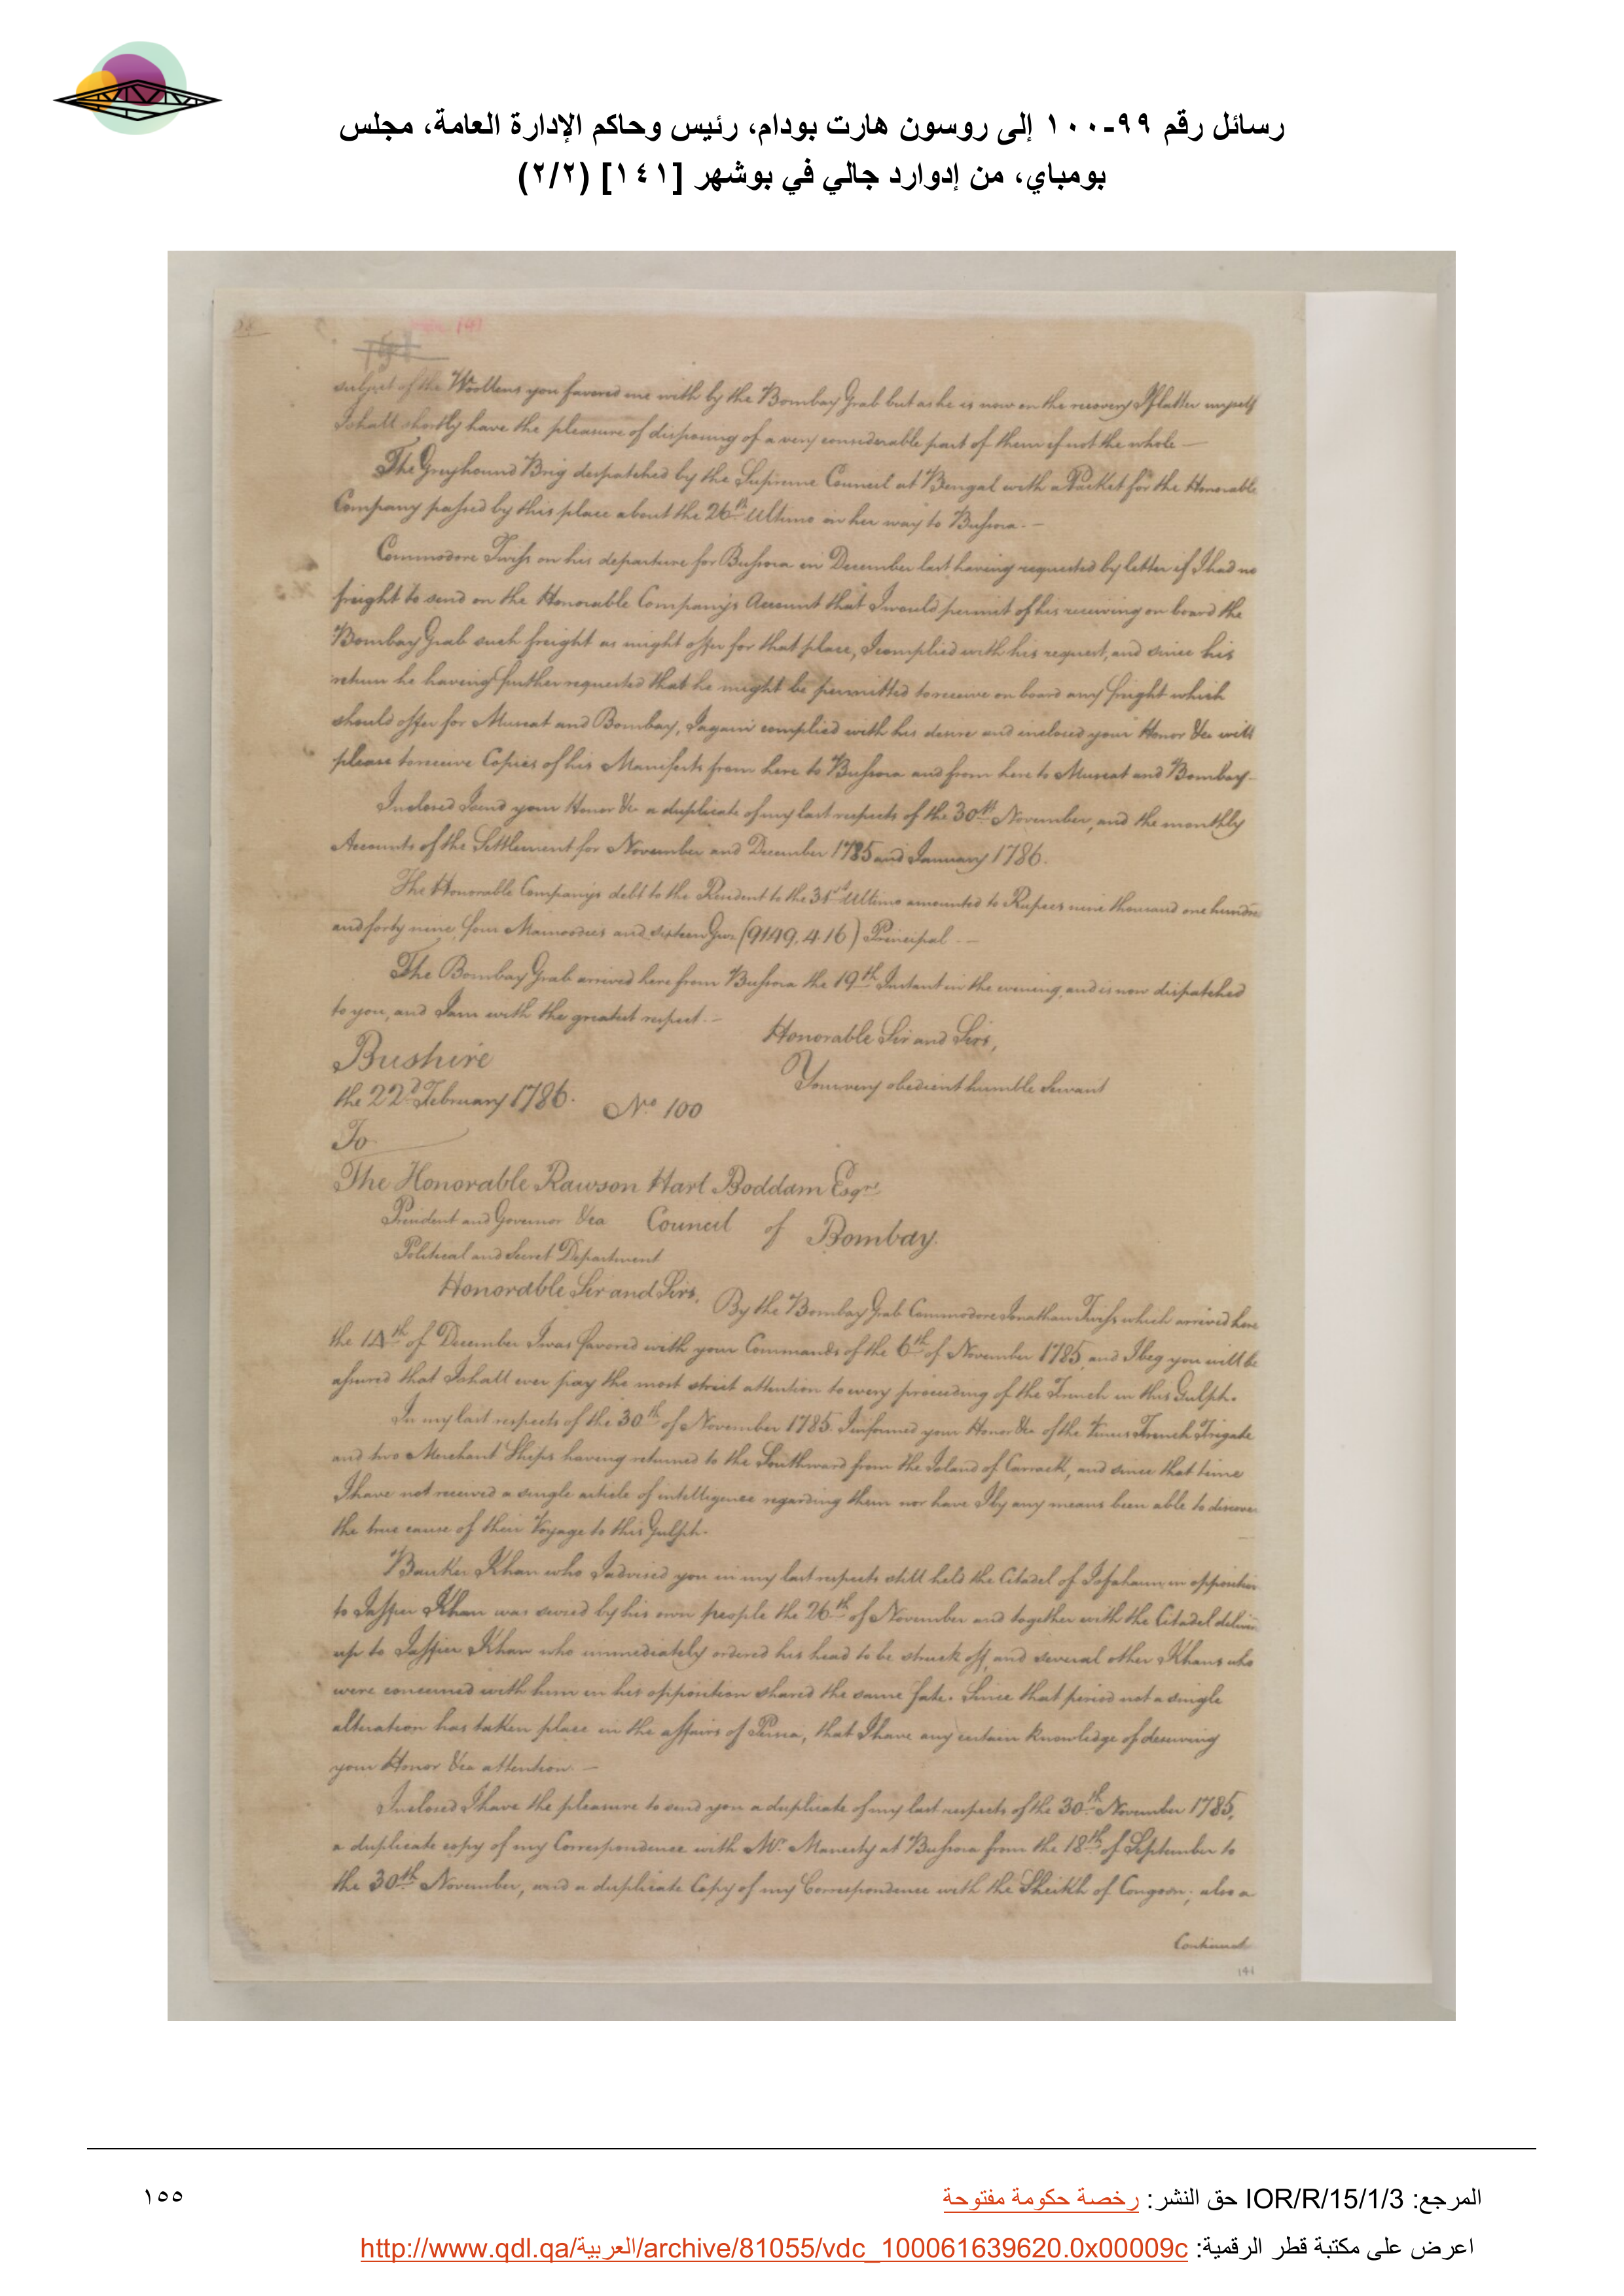 رسائل رقم ٩٩-١٠٠ إلى روسون هارت بودام، رئيس وحاكم الإدارة العامة، مجلس
بومباي، من إدوارد جالي في بوشهر [١٤١] (٢/٢)
141
subject of the Woollens you favored me with by the Bombay Grab but as he is now on the recovery I flatter myself
I shall shortly have the pleasure of disposing of a very considerable part of them if not the whole —
The Greyhound Brig despatched by the Supreme Council at Bengal with a Packet for the Honorable
Company passed by this place about the 26th Ultimo in her way to Bussora. —
Commodore Twiss on his departure for Bussora in December last having requested by letter if I had no
freight to send on the Honorable Company's Account that I would permit of his receiving on board the
Bombay Grab such freight as might offer for that place, I complied with his request, and since his
return he having further requested that he might be permitted to receive on board any freight which
should offer for Muscat and Bombay, I again complied with his desire and inclosed your Honor &ca will
please to receive Copies of his Manifests from here to Bussora and from here to Muscat and Bombay.
Inclosed I send your Honor &ca a duplicate of my last respects of the 30th November, and the monthly
Accounts of the Settlement for November and December 1785 and January 1786.
The Honorable Company's debt to the Resident to the 31st Ultimo amounted to Rupees nine thousand one hundre
and forty nine, four Mamoodies and sixteen (9149.4.16) Principal. —
The Bombay Grab arrived here from Bussora the 19th Instant in the evening, and is now dispatched
to you, and I am with the greatest respect. —
Honorable Sir and Sirs,
Bushire
Your very obedient humble Servant
the 22d February 1786.
No. 100
To
The Honorable Rawson Hart Boddam Esqre
President and Governor &ca Council of Bombay.
Political and Secret Department
Honorable Sir and Sirs,
By the Bombay Grab Commodore Jonathan Twiss which arrived here
the 14th of December I was favored with your Commands of the 6th of November 1785, and I beg you will be
assured that I shall ever pay the most strict attention to every proceeding of the French in this Gulph.
In my last respects of the 30th of November 1785. I informed your Honor &ca of the Venus French Frigate
and two Merchant Ships having returned to the Southward from the Island of Carrack, and since that time
I have not received a single article of intelligence regarding them nor have I by any means been able to discover
the true cause of their Voyage to this Gulph.
Bauker Khan who I advised you in my last respects still held the Citadel of Isfahaun in opposition
to Jaffier Khan was seized by his own people the 26th of November and together with the Citadel deliver
up to Jaffier Khan who immediately ordered his head to be struck off, and several other Khans who
were concerned with him in his opposition shared the same fate. Since that period not a single
alteration has taken place in the affairs of Persia, that I have any certain knowledge of deserving
your Honor &ca attention. —
Inclosed I have the pleasure to send you a duplicate of my last respects of the 30th November 1785,
a duplicate copy of my Correspondence with Mr. Manesty at Bussora from the 18th of September to
the 30th November, and a duplicate Copy of my Correspondence with the Sheikh of Congoon; also a
Continued
141
المرجع: IOR/R/15/1/3 حق النشر: رخصة حكومة مفتوحة
١٥٥
اعرض على مكتبة قطر الرقمية: http://www.qdl.qa/العربية/archive/81055/vdc_100061639620.0x00009c